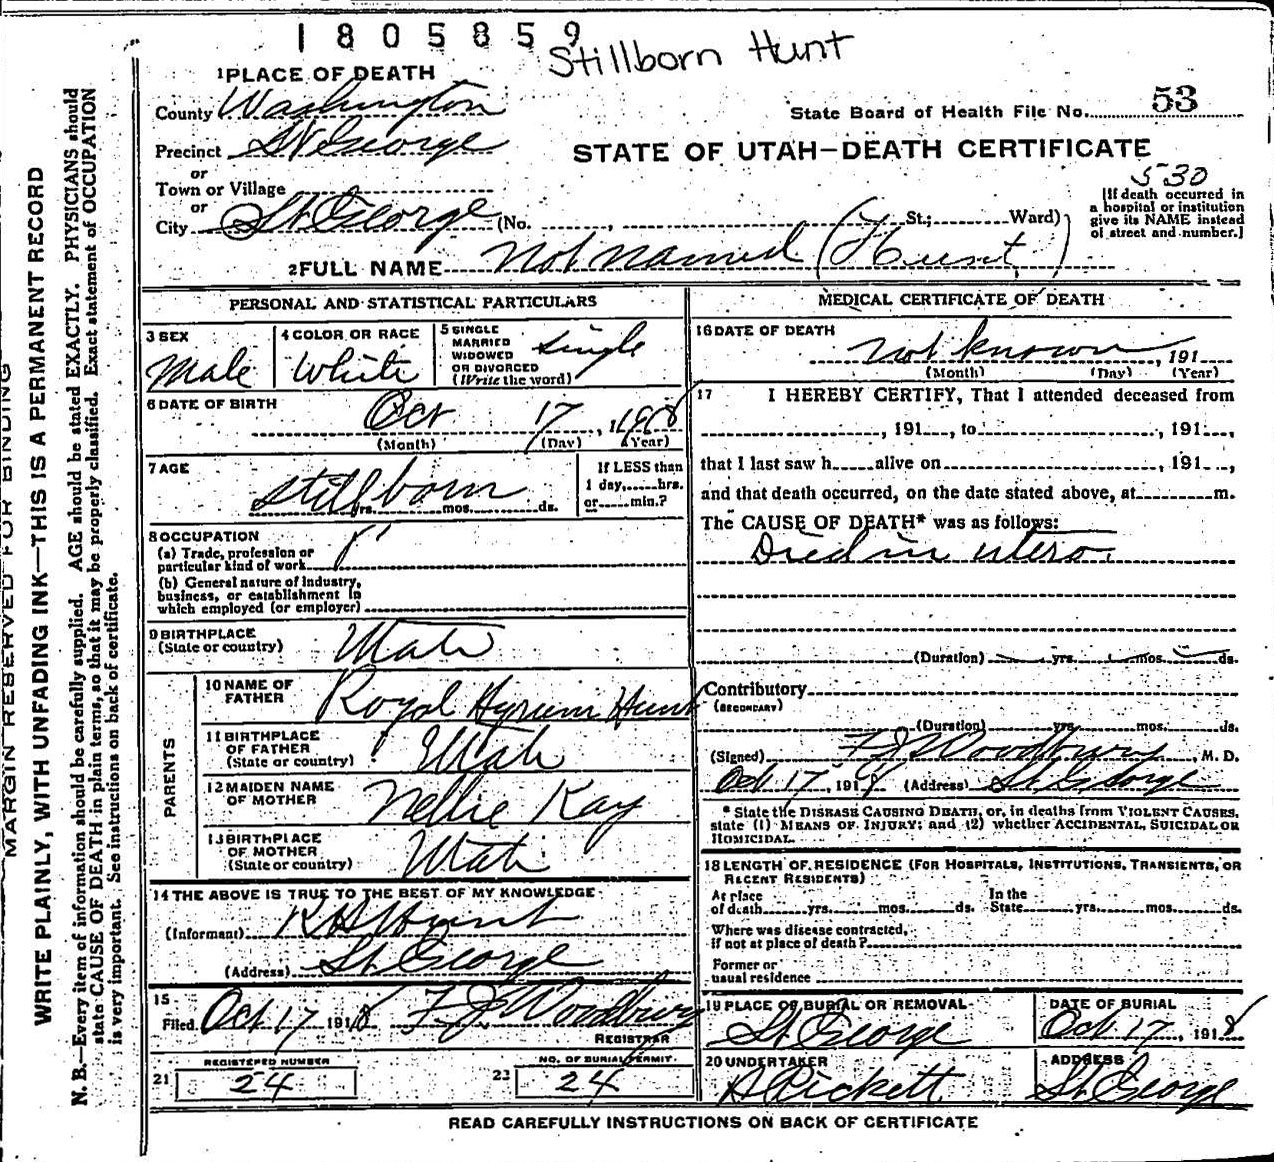 1805859
Stillborn Hunt
1 PLACE OF DEATH
County Washington
State Board of Health File No. 53
Precinct St George
STATE OF UTAH—DEATH CERTIFICATE
or
Town or Village
530
or
City St. George (No. , St.; Ward)
[If death occurred in
a hospital or institution
give its NAME instead
of street and number.]
2 FULL NAME Not named (Hunt)
PERSONAL AND STATISTICAL PARTICULARS
3 SEX
Male
4 COLOR OR RACE
White
5 SINGLE
MARRIED
WIDOWED
OR DIVORCED
(Write the word)
single
6 DATE OF BIRTH
Oct 17, 1918
(Month) (Day) (Year)
7 AGE
stillborn
yrs. mos. ds.
If LESS than
1 day, hrs.
or min.?
8 OCCUPATION
(a) Trade, profession or
particular kind of work
(b) General nature of industry,
business, or establishment in
which employed (or employer)
9 BIRTHPLACE
(State or country) Utah
PARENTS
10 NAME OF
FATHER Royal Hyrum Hunt
11 BIRTHPLACE
OF FATHER
(State or country) Utah
12 MAIDEN NAME
OF MOTHER Nellie Kay
13 BIRTHPLACE
OF MOTHER
(State or country) Utah
14 THE ABOVE IS TRUE TO THE BEST OF MY KNOWLEDGE
(Informant) R H Hunt
(Address) St. George
15
Filed Oct 17 1918 F J Woodbury
REGISTRAR
REGISTERED NUMBER
21 24
NO. OF BURIAL PERMIT.
22 24
MEDICAL CERTIFICATE OF DEATH
16 DATE OF DEATH
not known, 191
(Month) (Day) (Year)
17 I HEREBY CERTIFY, That I attended deceased from
, 191 , to , 191 ,
that I last saw h alive on , 191 ,
and that death occurred, on the date stated above, at m.
The CAUSE OF DEATH* was as follows:
Died in utero
(Duration) yrs. mos. ds.
Contributory
(SECONDARY)
(Duration) yrs. mos. ds.
(Signed) F J Woodbury, M. D.
Oct 17, 1918 (Address) St George
* State the DISEASE CAUSING DEATH, or, in deaths from VIOLENT CAUSES,
state (1) MEANS OF INJURY; and (2) whether ACCIDENTAL, SUICIDAL OR
HOMICIDAL.
18 LENGTH OF RESIDENCE (FOR HOSPITALS, INSTITUTIONS, TRANSIENTS, OR
RECENT RESIDENTS)
At place
of death yrs. mos. ds. In the
State yrs. mos. ds.
Where was disease contracted,
if not at place of death?
Former or
usual residence
19 PLACE OF BURIAL OR REMOVAL
St George
DATE OF BURIAL
Oct. 17, 1918
20 UNDERTAKER
A Pickett
ADDRESS
St. George
READ CAREFULLY INSTRUCTIONS ON BACK OF CERTIFICATE
MARGIN RESERVED FOR BINDING
WRITE PLAINLY, WITH UNFADING INK—THIS IS A PERMANENT RECORD
N. B.—Every item of information should be carefully supplied. AGE should be stated EXACTLY. PHYSICIANS should
state CAUSE OF DEATH in plain terms, so that it may be properly classified. Exact statement of OCCUPATION
is very important. See instructions on back of certificate.